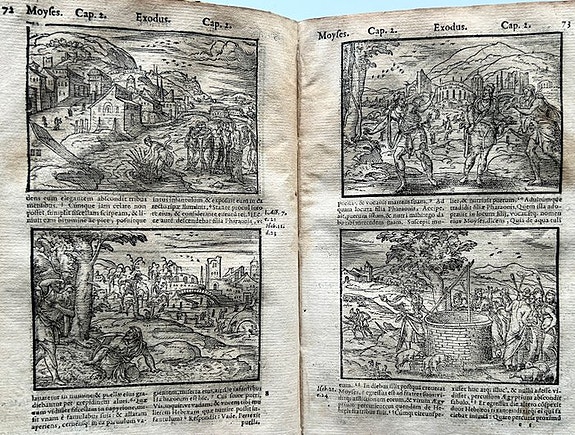 72 Moyses. Cap. 2. Exodus. Cap. 2.
dens eum elegantem abscondit tribus
mensibus. Cumque iam celare non
posset, sumpsit fiscellam scirpeam, & li-
niuit eam bitumine ac pice: posuitque
intus infantulum, & exposuit eum in
ripæ fluminis. Stante procul soro-
re eius, & considerante euentum rei. Ec-
ce autem descendebat filia Pharaonis, vt
Heb. 11.
lauaretur in flumine: & puellæ eius gra-
diebantur per crepidinem aluei. Quæ
cum vidisset fiscellam in papyrione, mi-
sit vnam è famulabus suis: & allatam
aperiens, cernensque in ea paruulum
vagientem, miserta eius, ait: De infantibus
Hebræorum est hic. Cui soror pueri,
Vis, inquit, vt vadam, & vocem tibi mu-
lierem Hebræam, quæ nutrire possit in-
fantulum? Respondit: Vade. Perrexit
puella,
Moyses. Cap. 2. Exodus. Cap. 2. 73
puella, & vocauit matrem suam. Ad
quam locuta filia Pharaonis: Accipe,
ait, puerum istum, & nutri mihi: ego da-
bo tibi mercedem tuam. Suscepit mu-
lier, & nutriuit puerum. Adultumque
tradidit filiæ Pharaonis. Quem illa ado-
ptauit in locum filij, vocauitque nomen
eius Moyses, dicens: Quia de aqua tuli
Heb. 11.
e. 24
eum. In diebus illis postquam creuerat
Moyses, egressus est ad fratres suos: vi-
ditque afflictionem eorum, & virum Ae-
gyptium percutientem quendam de He-
bræis fratribus suis. Cumque circumspe-
xisset huc atque illuc, & nullum adesse vi-
disset, percussum Aegyptium abscondit
sabulo. Et egressus die altero conspexit
duos Hebræos rixantes:
e 5